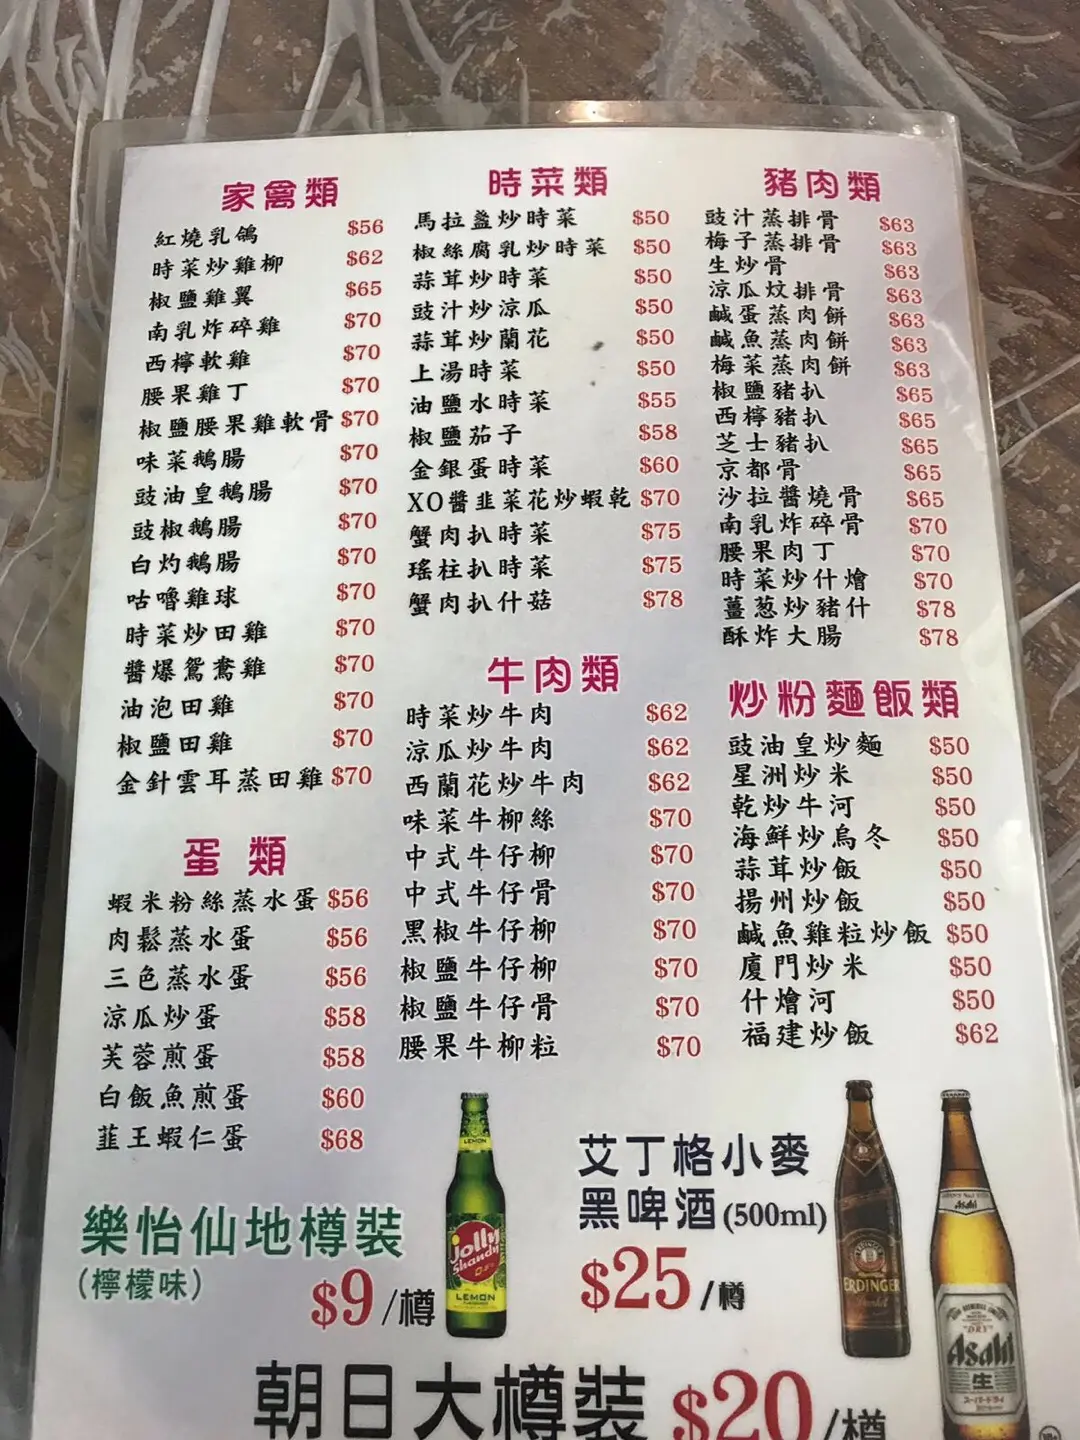 家禽類
紅燒乳鴿 $56
時菜炒雞柳 $62
椒鹽雞翼 $65
南乳炸碎雞 $70
西檸軟雞 $70
腰果雞丁 $70
椒鹽腰果雞軟骨 $70
味菜鵝腸 $70
豉油皇鵝腸 $70
豉椒鵝腸 $70
白灼鵝腸 $70
咕嚕雞球 $70
時菜炒田雞 $70
醬爆鴛鴦雞 $70
油泡田雞 $70
椒鹽田雞 $70
金針雲耳蒸田雞 $70
蛋類
蝦米粉絲蒸水蛋 $56
肉鬆蒸水蛋 $56
三色蒸水蛋 $56
涼瓜炒蛋 $58
芙蓉煎蛋 $58
白飯魚煎蛋 $60
韮王蝦仁蛋 $68
時菜類
馬拉盞炒時菜 $50
椒絲腐乳炒時菜 $50
蒜茸炒時菜 $50
豉汁炒涼瓜 $50
蒜茸炒蘭花 $50
上湯時菜 $50
油鹽水時菜 $55
椒鹽茄子 $58
金銀蛋時菜 $60
XO醬韭菜花炒蝦乾 $70
蟹肉扒時菜 $75
瑤柱扒時菜 $75
蟹肉扒什菇 $78
牛肉類
時菜炒牛肉 $62
涼瓜炒牛肉 $62
西蘭花炒牛肉 $62
味菜牛柳絲 $70
中式牛仔柳 $70
中式牛仔骨 $70
黑椒牛仔柳 $70
椒鹽牛仔柳 $70
椒鹽牛仔骨 $70
腰果牛柳粒 $70
豬肉類
豉汁蒸排骨 $63
梅子蒸排骨 $63
生炒骨 $63
涼瓜炆排骨 $63
鹹蛋蒸肉餅 $63
鹹魚蒸肉餅 $63
梅菜蒸肉餅 $63
椒鹽豬扒 $65
西檸豬扒 $65
芝士豬扒 $65
京都骨 $65
沙拉醬燒骨 $65
南乳炸碎骨 $70
腰果肉丁 $70
時菜炒什燴 $70
薑葱炒豬什 $78
酥炸大腸 $78
炒粉麵飯類
豉油皇炒麵 $50
星洲炒米 $50
乾炒牛河 $50
海鮮炒烏冬 $50
蒜茸炒飯 $50
揚州炒飯 $50
鹹魚雞粒炒飯 $50
廈門炒米 $50
什燴河 $50
福建炒飯 $62
樂怡仙地樽裝
(檸檬味)
$9/樽
LEMON
jolly
Shandy
LEMON
艾丁格小麥
黑啤酒(500ml)
$25/樽
ERDINGER
Dunkel
Asahi
"DRY"
Asahi
生
スーパードライ
朝日大樽裝 $20/樽